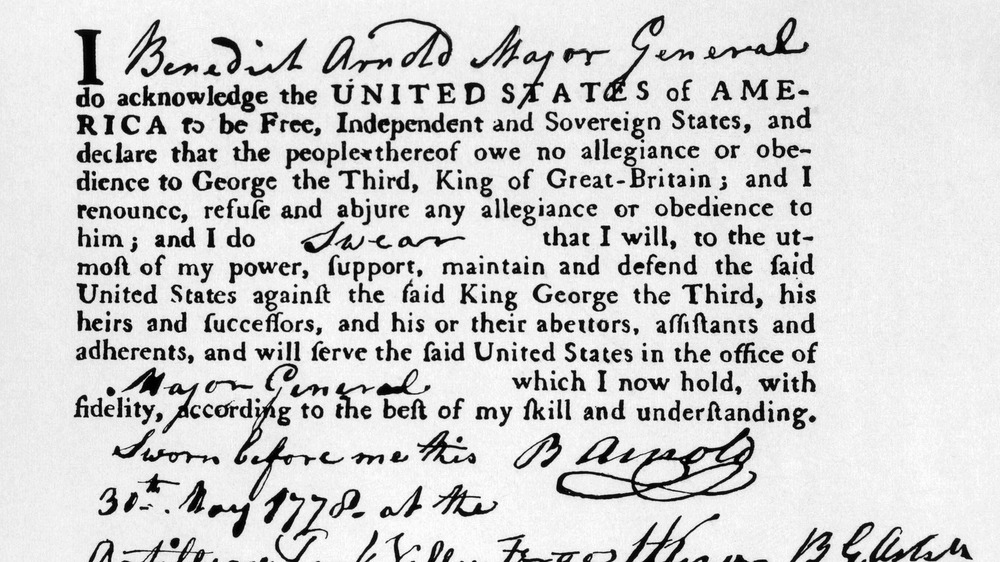 I Benedict Arnold Major General
do acknowledge the UNITED STATES of AME-
RICA to be Free, Independent and Sovereign States, and
declare that the people thereof owe no allegiance or obe-
dience to George the Third, King of Great-Britain; and I
renounce, refuſe and abjure any allegiance or obedience to
him; and I do Swear that I will, to the ut-
moſt of my power, ſupport, maintain and defend the ſaid
United States againſt the ſaid King George the Third, his
heirs and ſucceſſors, and his or their abettors, aſſiſtants and
adherents, and will ſerve the ſaid United States in the office of
Major General which I now hold, with
fidelity, according to the beſt of my ſkill and underſtanding.
Sworn before me this B Arnold
30th May 1778 at the
Artillery Park Valley Forge HKnox B G Artily